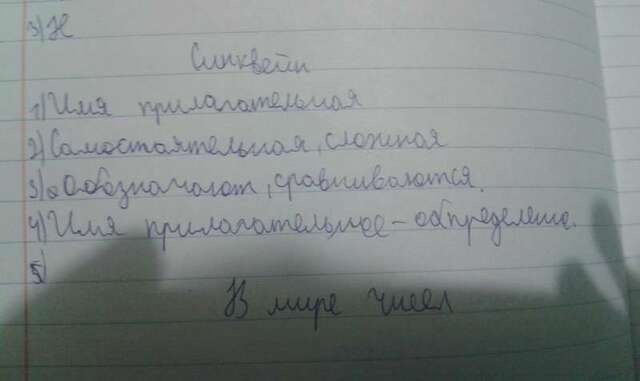 3) Н
Синквейн
1) Имя прилагательная
2) Самостоятельная, сложная
3) Обозначают, сравниваются.
4) Имя прилагательное - определение.
5)
В мире чисел